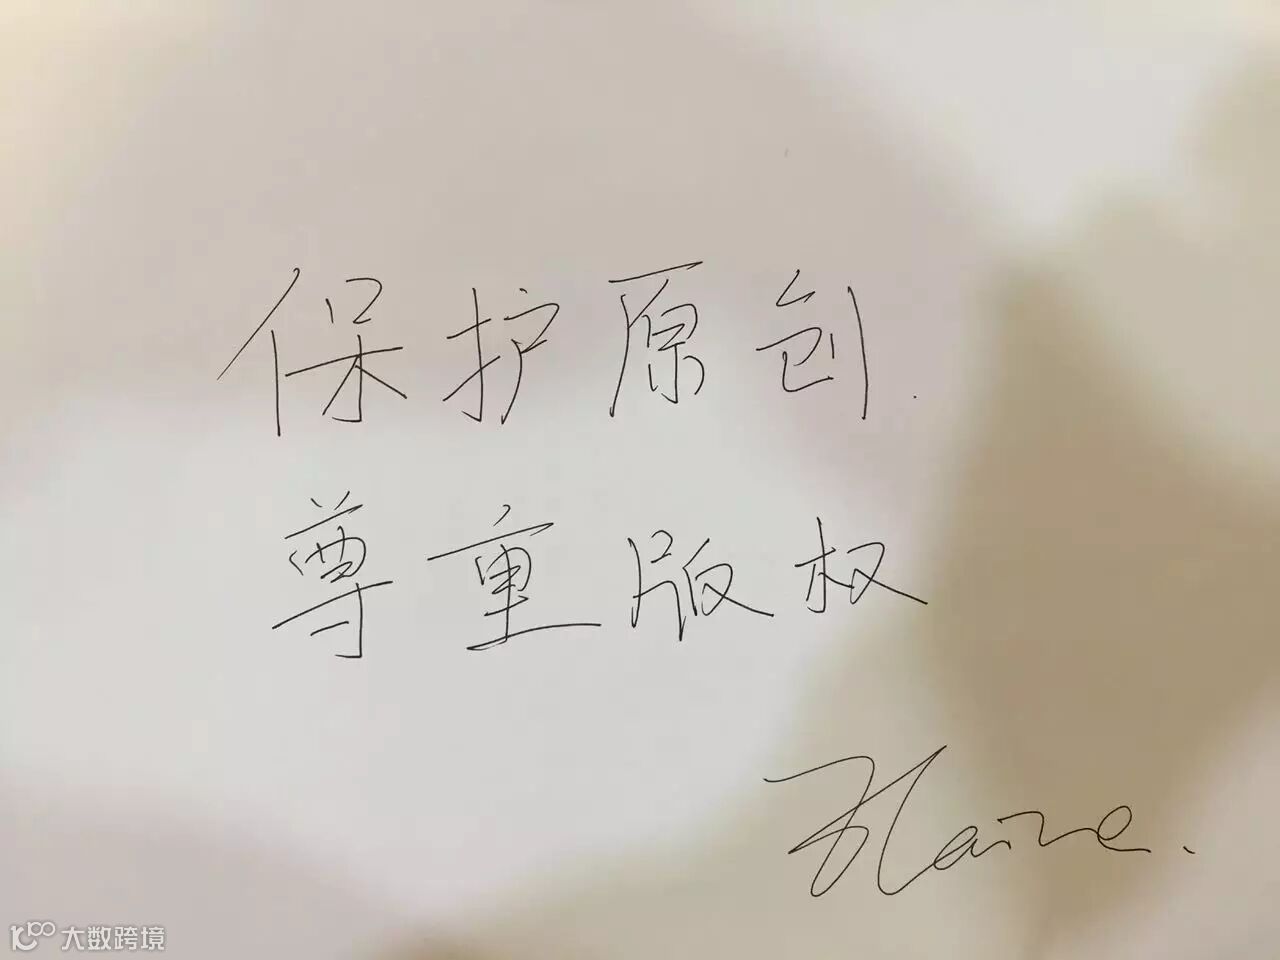 保护原创.
尊重版权
Elaine.
大数跨境